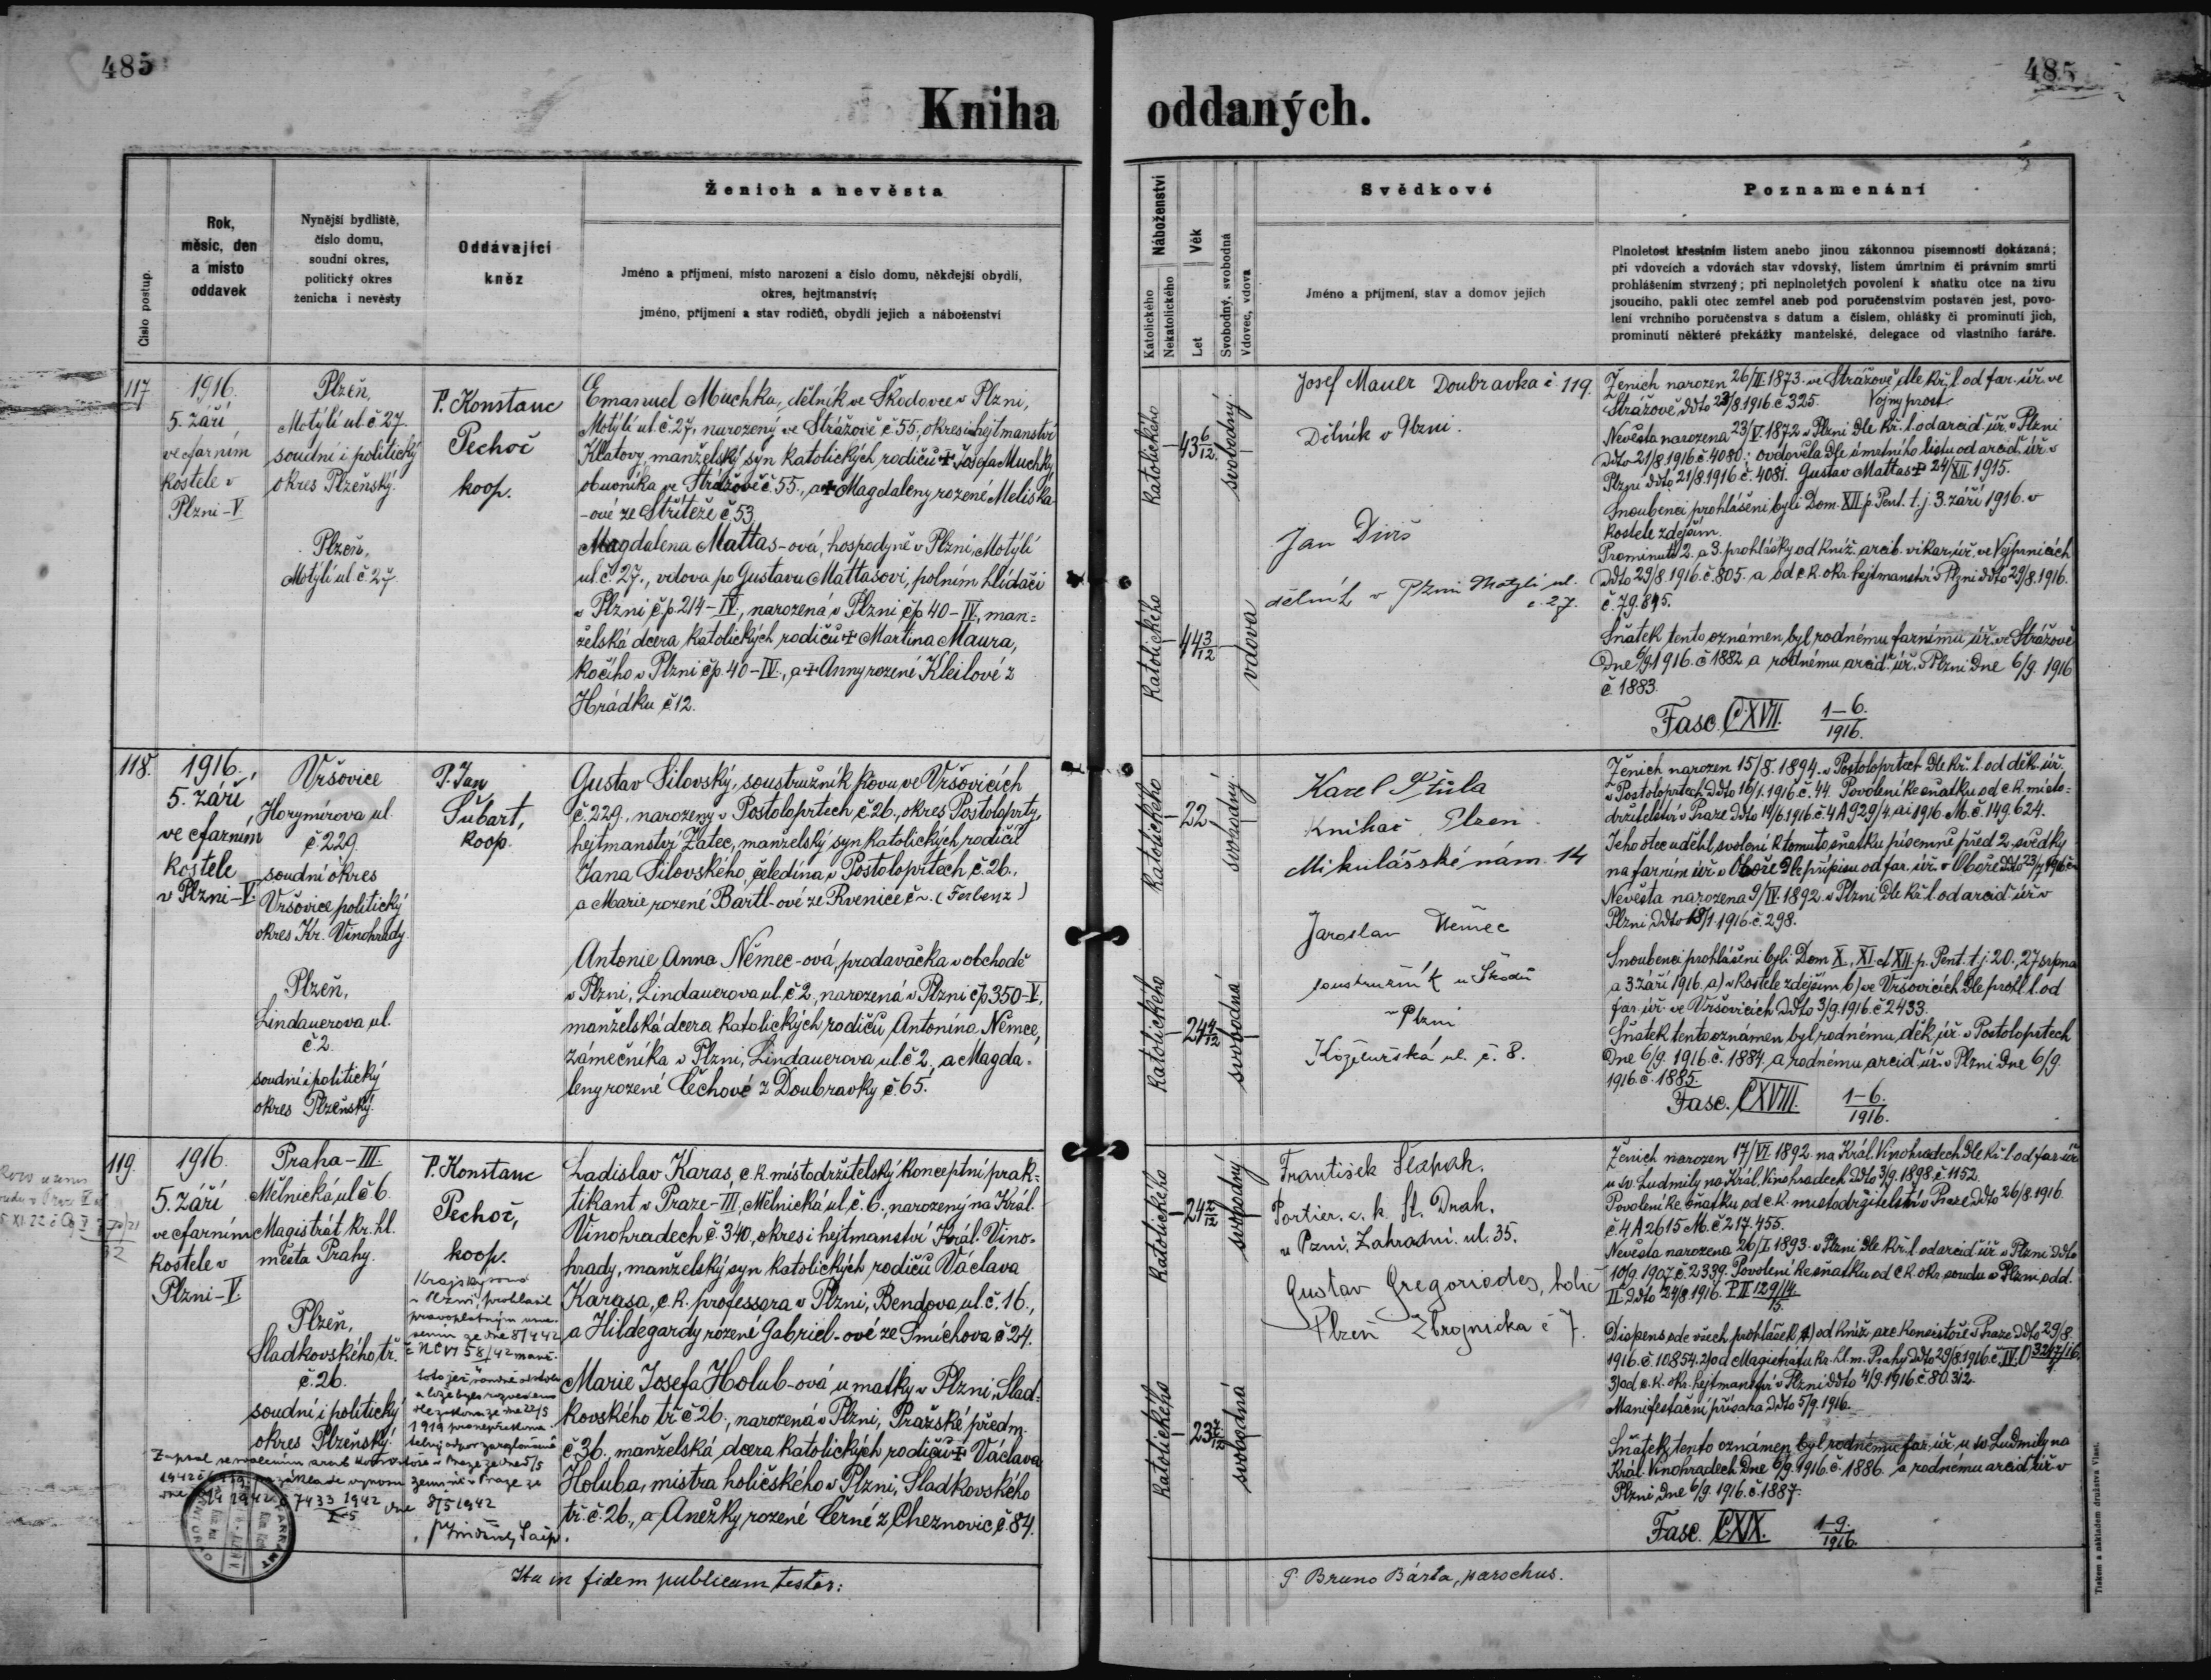 485
485
Kniha oddaných.
Číslo postup.
Rok,
měsíc, den
a místo
oddavek
Nynější bydliště,
číslo domu,
soudní okres,
politický okres
ženicha i nevěsty
Oddávající
kněz
Ženich a nevěsta
Jméno a příjmení, místo narození a číslo domu, někdejší obydlí,
okres, hejtmanství;
jméno, příjmení a stav rodičů, obydlí jejich a náboženství
Náboženství
Katolického
Nekatolického
Věk
Let
Svobodný, svobodná
Vdovec, vdova
Svědkové
Jméno a příjmení, stav a domov jejich
Poznamenání
Plnoletost křestním listem anebo jinou zákonnou písemností dokázaná;
při vdovcích a vdovách stav vdovský, listem úmrtním či právním smrti
prohlášením stvrzený; při neplnoletých povolení k sňatku otce na živu
jsoucího, pakli otec zemřel aneb pod poručenstvím postaven jest, povo-
lení vrchního poručenstva s datum a číslem, ohlášky či prominutí jich,
prominutí některé překážky manželské, delegace od vlastního faráře.
117
1916.
5. září
ve farním
kostele v
Plzni-V
Plzeň,
Motýlí ul. č. 27.
soudní i politický
okres Plzeňský.
Plzeň,
Motýlí ul. č. 27
P. Konstanc
Pechoč
koop.
Emanuel Muchka, dělník ve Škodovce v Plzni,
Motýlí ul. č. 27., narozený ve Strážově č 55, okres i hejtmanství
Klatovy, manželský syn katolických rodičů + Josefa Muchky
obuvníka ve Strážově č 55., a + Magdaleny rozené Meliška-
-ové ze Střítěže č 53
Magdalena Mattas-ová, hospodyně v Plzni, Motýlí
ul. č. 27., vdova po Gustavu Mattasovi, polním hlídači
v Plzni č.p. 214-IV., narozená v Plzni č/p 40-IV., man=
želská dcera katolických rodičů + Martina Maura,
kočího v Plzni č/p. 40-IV., a + Anny rozené Kleilové z
Hrádku č 12.
katolického
43 6/12
svobodný.
katolického
44 3/12
vdova
Josef Mauer Doubravka č 119.
Dělník v Plzni.
Jan Diviš
dělník v Plzni Motýlí ul.
č. 27.
Ženich narozen 26/II. 1873. ve Strážově dle kř. l. od far. úř. ve
Strážově ddto 23/8. 1916. č 325. Vojny prost.
Nevěsta narozena 23/V. 1872. v Plzni dle kř. l. od arcid. úř. v Plzni
ddto 21/8. 1916. č. 4080; ovdověla dle úmrtního listu od arcid. úř. v
Plzni ddto 21/8. 1916 č. 4081. Gustav Mattas + 24/XII. 1915.
Snoubenci prohlášeni byli Dom. XII p. Pent. t. j. 3. září 1916. v
kostele zdejším.
Prominutí 2. a 3. prohlášky od kníž. arcib. vikar. úř. ve Vejprnicích
ddto 29/8. 1916. č. 805. a od c. k. okr. hejtmanství v Plzni ddto 29/8. 1916.
č. 79.815.
Sňatek tento oznámen byl rodnému farnímu úř. ve Strážově
Dne 6/9. 1916. č 1882 a rodnému arcid. úř. v Plzni Dne 6/9. 1916
č. 1883.
Fasc. CXVII. 1-6./1916.
118.
1916.
5. září
ve farním
kostele
v Plzni-V
Vršovice
Horymírova ul.
č. 229.
soudní okres
Vršovice politický
okres Kr. Vinohrady.
Plzeň,
Lindauerova ul.
č 2.
soudní i politický
okres Plzeňský.
P. Jan
Šubart,
koop.
Gustav Silovský, soustružník kovu ve Vršovicích
č. 229., narozený v Postoloprtech č. 26., okres Postoloprty,
hejtmanství Žatec, manželský syn katolických rodičů
Jana Silovského, čeledína v Postoloprtech č. 26.,
a Marie rozené Bartl-ové ze Rvenice č ~. (Ferbenz)
Antonie Anna Němec-ová, prodavačka v obchodě
v Plzni, Lindauerova ul. č 2., narozená v Plzni č/p 350-V.,
manželská dcera katolických rodičů Antonína Němce,
zámečníka v Plzni, Lindauerova ul. č 2., a Magda=
leny rozené Čechové z Doubravky č. 65.
katolického
22
svobodný.
katolického
24 4/12
svobodná
Karel
Knihař Plzeň
Mikulášské nám. 14
Jaroslav Němec
soustružník u Škodů
v Plzni
Koželužská ul. č. 8.
Ženich narozen 15/8. 1894. v Postoloprtech dle kř. l. od děk. úř.
v Postoloprtech ddto 16/1. 1916. č. 44. Povolení ke sňatku od c. k. místo=
držitelství v Praze ddto 14/6. 1916. č. 4A 929/4. ai 1916. M. č. 149.624.
Jeho otec udělil svolení k tomuto sňatku písemně před 2. svědky
na farním úř. v Oboře dle přípisu od far. úř. v Oboře ddto
Nevěsta narozena 9/IV. 1892. v Plzni dle kř. l. od arcid. úř. v
Plzni ddto 18/1. 1916. č. 298.
Snoubenci prohlášeni byli Dom. X., XI. et XII. p. Pent. t. j. 20., 27 srpna
a 3. září 1916. a) v kostele zdejším b) ve Vršovicích dle prohl. l. od
far. úř. ve Vršovicích ddto 3/9. 1916. č 2433.
Sňatek tento oznámen byl rodnému děk. úř. v Postoloprtech
Dne 6/9. 1916. č. 1884. a rodnému arcid. úř. v Plzni Dne 6/9.
1916. č. 1885.
Fasc. CXVIII. 1-6./1916.
119.
1916.
5. září
ve farním
kostele v
Plzni-V
Praha-III
Mělnická ul. č 6.
Magistrát kr. hl.
města Prahy.
Plzeň,
Sladkovského tř.
č. 26.
soudní i politický
okres Plzeňský.
P. Konstanc
Pechoč,
koop.
Krajský soud
v Plzni prohlásil
pravoplatným usne-
sením ze dne 8/4 42
č. Nc VI 58/42 manž.
1919
Ladislav Karas, c. k. místodržitelský konceptní prak=
tikant v Praze-III, Mělnická ul. č. 6., narozený na Král.
Vinohradech č. 340., okres i hejtmanství Král. Vino=
hrady, manželský syn katolických rodičů Václava
Karasa, c. k. professora v Plzni, Bendova ul. č. 16.,
a Hildegardy rozené Gabriel-ové ze Smíchova č 24.
Marie Josefa Holub-ová, u matky v Plzni, Slad=
kovského tř. č 26., narozená v Plzni, Pražské předm.
č 36. manželská dcera katolických rodičů + Václava
Holuba, mistra holičského v Plzni, Sladkovského
tř. č. 26., a Anežky rozené Černé z Cheznovic č. 84.
katolického
24 2/12
svobodný
katolického
23 7/12
svobodná
František Slapak.
Portier. c. k. St. Drah.
v Pzni. Zahradní. ul. 35.
Gustav Gregoriades, holič
Plzeň Zbrojnicka č 7.
Ženich narozen 17/VI. 1892. na Král. Vinohradech dle kř. l. od far. úř.
u sv. Ludmily na Král. Vinohradech ddto 3/9. 1898. č. 1152.
Povolení ke sňatku od c. k. místodržitelství v Praze ddto 26/8. 1916.
č. 4 A 2615 M. č. 217.455.
Nevěsta narozena 26/I. 1893. v Plzni dle kř. l. od arcid. úř. v Plzni ddto
10/9. 1907. č. 2339. Povolení ke sňatku od c. k. okr. soudu v Plzni, odd.
II ddto 24/8. 1916. P II 129/14.
Dispens ode všech prohlášek 1) od kníž. arc. konsistoře v Praze ddto 29/8.
1916. č. 10854. 2) od Magistrátu kr. hl. m. Prahy ddto 29/8. 1916. č. IV. 3217/16.
3) od c. k. okr. hejtmanství v Plzni ddto 4/9. 1916. č. 80.312.
Manifestační přísaha ddto 5/9. 1916.
Sňatek tento oznámen byl rodnému far. úř. u sv. Ludmily na
Král. Vinohradech Dne 6/9. 1916. č. 1886. a rodnému arcid. úř. v
Plzni Dne 6/9. 1916. č. 1887.
Fasc. CXIX. 1-9./1916.
Ita in fidem publicam testor:
P. Bruno Bárta, parochus.
Tiskem a nákladem družstva Vlast.